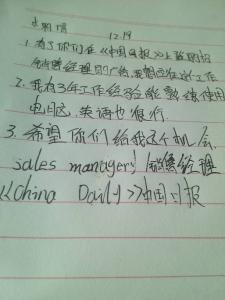 求职信
12.19
1. 看了你们在《中国日报》上登的招
销售经理的广告,我想应征这个工作
2. 我有3年工作经验能熟练使用
电脑,英语也很行.
3. 希望你们给我这个机会.
sales managers 销售经理
《China Daily》中国日报